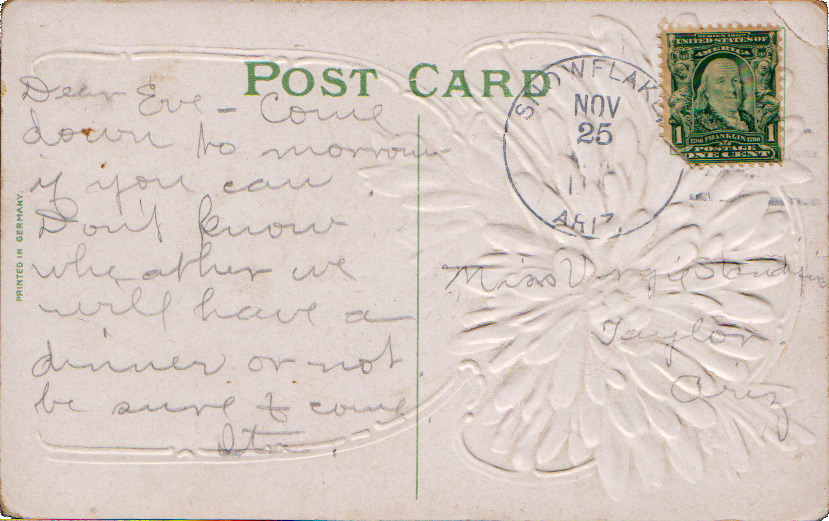 POST CARD
Dear Eve - Come
down to morrow
if you can.
Don't know
wheather we
will have a
dinner or not.
be sure & come
PRINTED IN GERMANY.
SNOWFLAKE
NOV
25
ARIZ.
SERIES 1902
UNITED STATES OF
AMERICA
1 1
1706 FRANKLIN 1790
POSTAGE
ONE CENT
Miss Virgie Standifird
Taylor.
Ariz